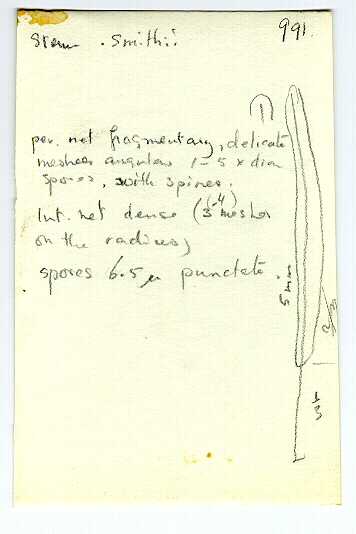 991
Stem. Smithii
per. net fragmentary, delicate
meshes angular 1-5 x diam
spores, with spines.
Int. net dense (3(-4) meshes
on the radius)
spores 6.5 µ punctate.
5 mm